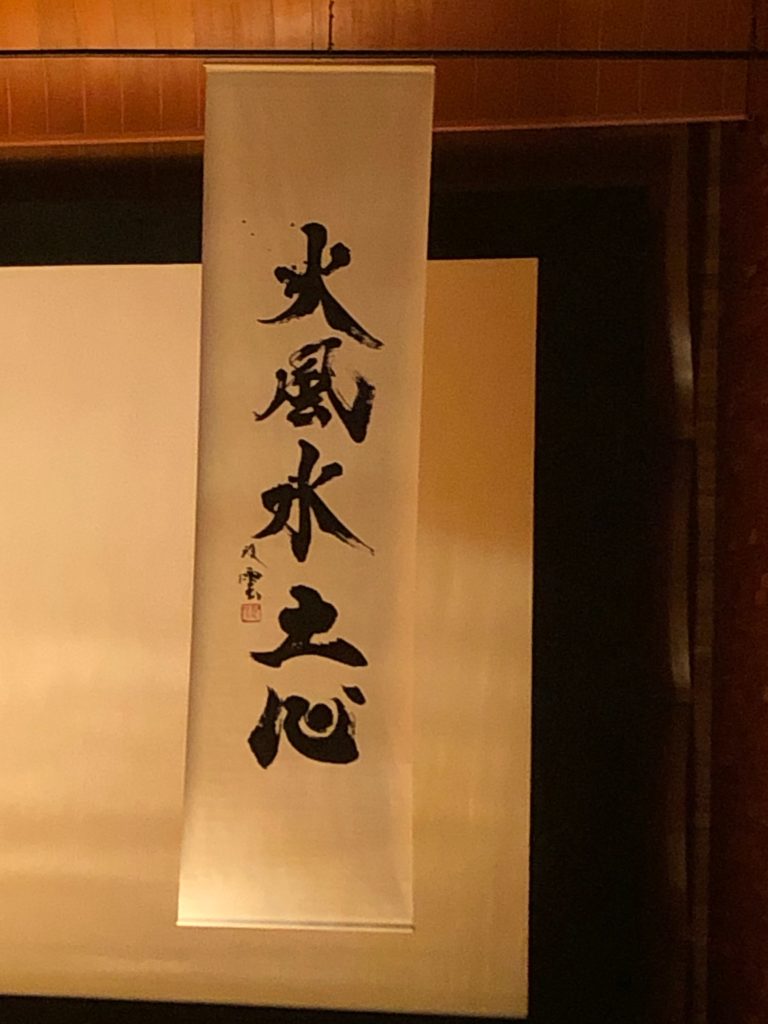 火風水土心
雲